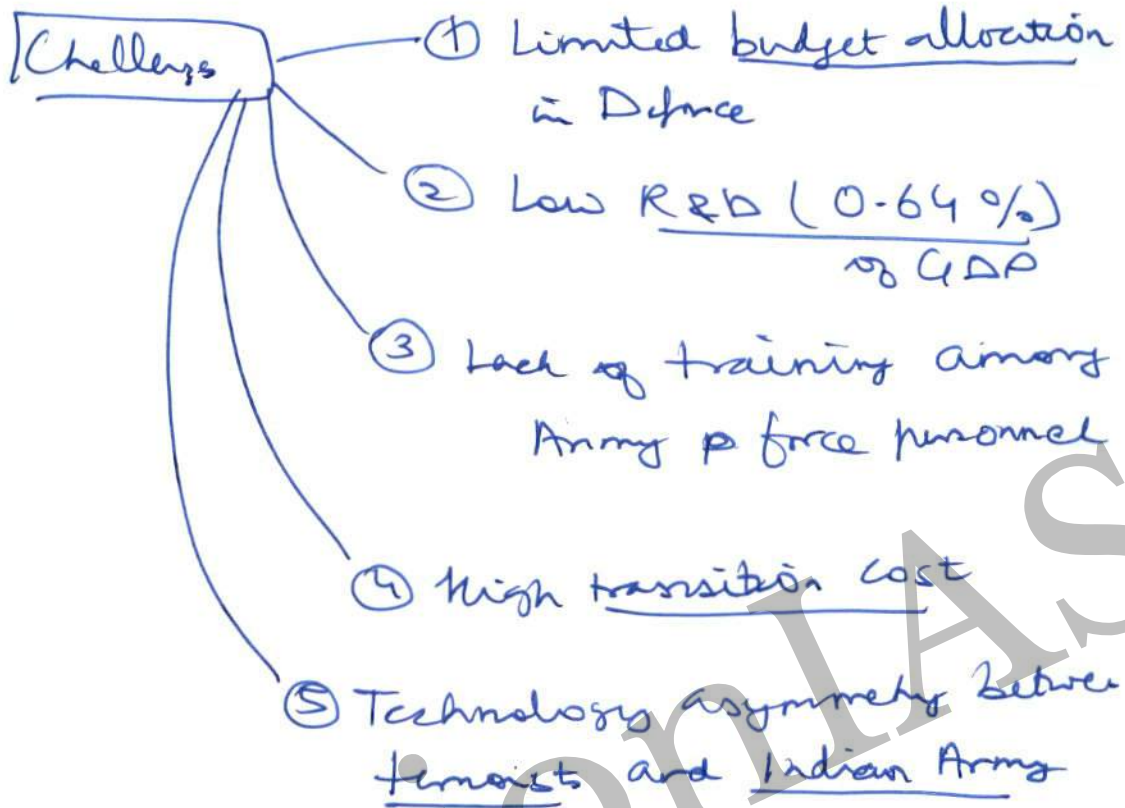 Challenges
① Limited budget allocation
in Defence
② Low R&D (0.64%)
of GDP
③ Lack of training among
Army force personnel
④ High transition cost
⑤ Technology asymmetry between
terrorists and Indian Army
onIAS